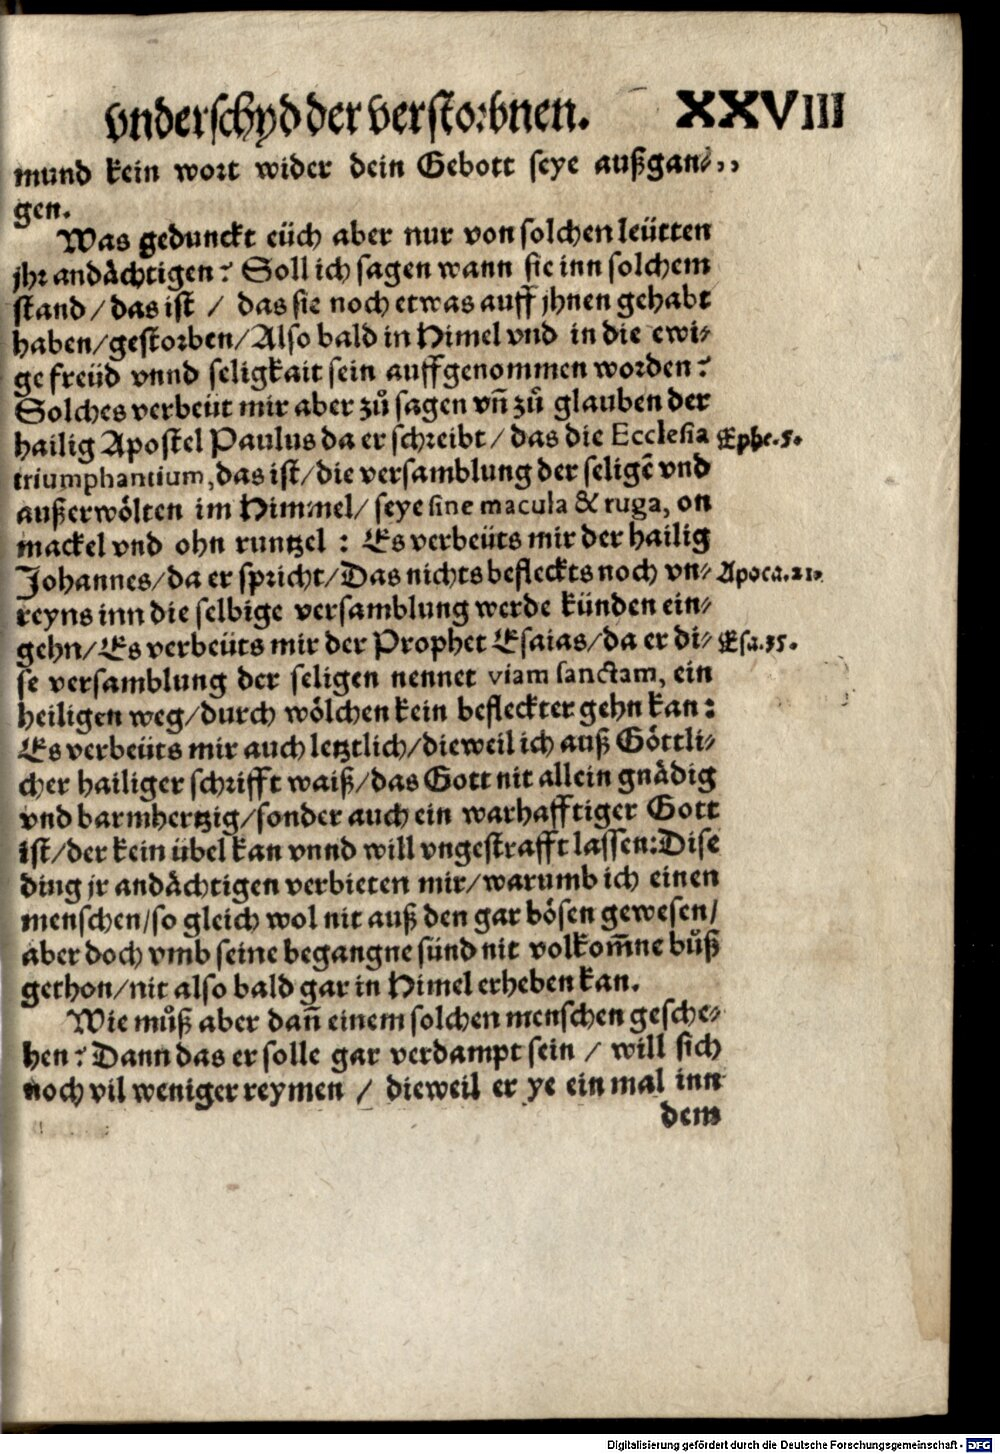 vnderschyd der verstorbnen. XXVIII
mund kein wort wider dein Gebott seye außgan⸗,,
gen.
Was gedunckt eüch aber nur von solchen leütten
jhr andächtigen? Soll ich sagen wann sie inn solchem
stand / das ist / das sie noch etwas auff jhnen gehabt
haben / gestorben / Also bald in Himel vnd in die ewi⸗
ge freüd vnnd seligkait sein auffgenommen worden?
Solches verbeüt mir aber zů sagen vñ zů glauben der
hailig Apostel Paulus da er schreibt / das die Ecclesia Ephe.5.
triumphantium, das ist / die versamblung der seligẽ vnd
außerwölten im Himmel / seye sine macula & ruga, on
mackel vnd ohn runtzel : Es verbeüts mir der hailig
Johannes / da er spricht / Das nichts beflecks noch vn⸗ Apoca.21.
reyns inn die selbige versamblung werde künden ein⸗
gehn / Es verbeüts mir der Prophet Esaias / da er di⸗ Esa.35.
se versamblung der seligen nennet viam sanctam, ein
heiligen weg / durch wölchen kein befleckter gehn kan:
Es verbeüts mir auch letztlich / dieweil ich auß Göttli⸗
cher hailiger schrifft waiß / das Gott nit allein gnädig
vnd barmhertzig / sonder auch ein warhafftiger Gott
ist / der kein übel kan vnnd will vngestrafft lassen: Dise
ding jr andächtigen verbieten mir / warumb ich einen
menschen / so gleich wol nit auß den gar bösen gewesen /
aber doch vmb seine begangne sünd nit volkom̃ne bůß
gethon / nit also bald gar in Himel erheben kan.
Wie můß aber dañ einem solchen menschen gesche⸗
hen? Dann das er solle gar verdampt sein / will sich
noch vil weniger reymen / dieweil er ye ein mal inn
dem
Digitalisierung gefördert durch die Deutsche Forschungsgemeinschaft - DFG